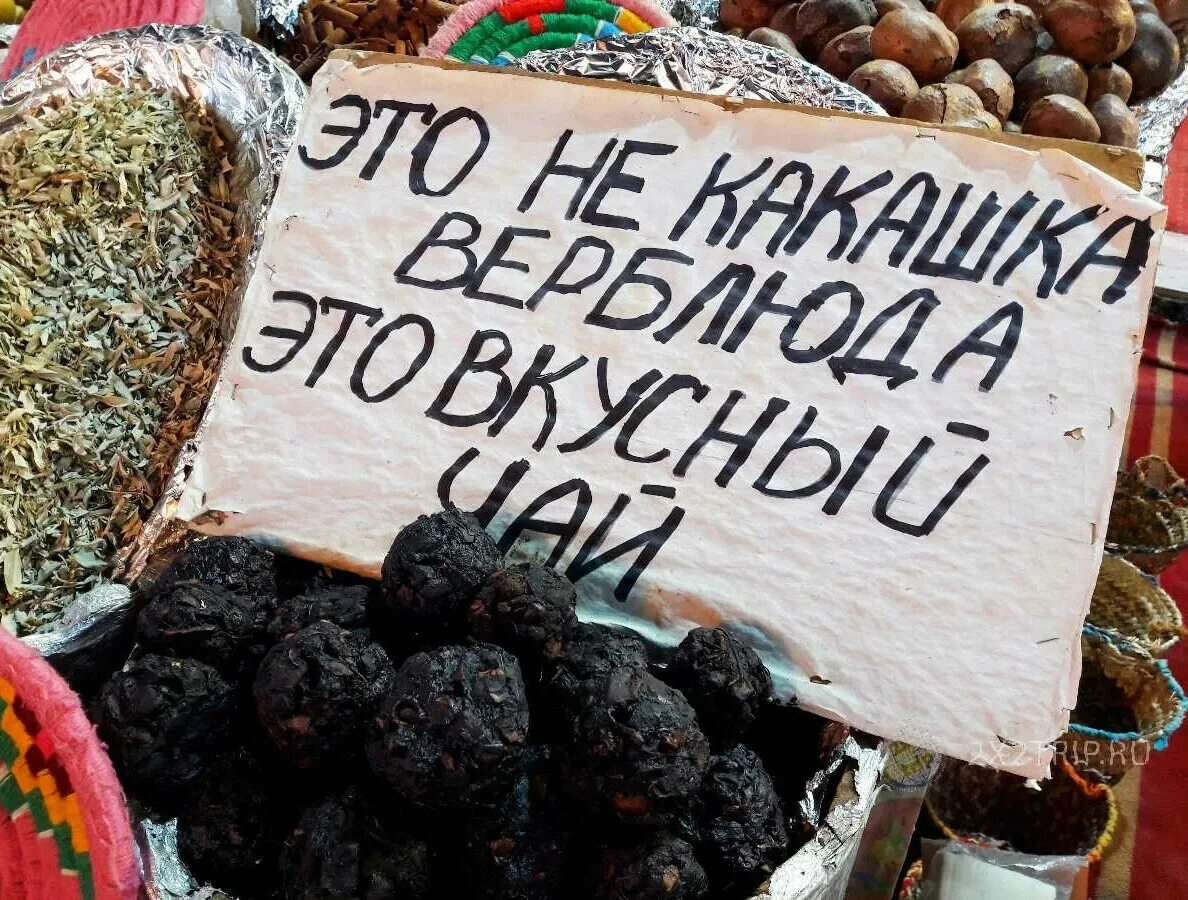 ЭТО НЕ КАКАШКА
ВЕРБЛЮДА
ЭТО ВКУСНЫЙ
ЧАЙ
2X2TRIP.RU